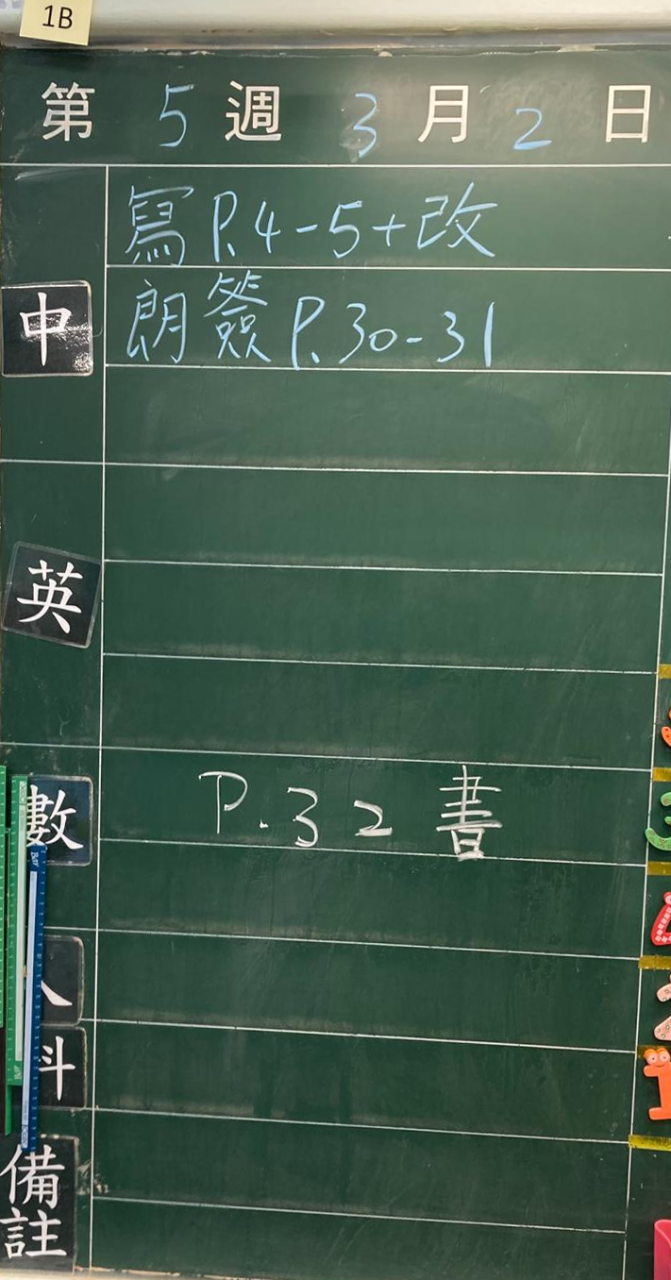 1B
第 5 週 3 月 2 日
寫 P.4-5+改
中
朗 簽 P.30-31
英
數
P.32 書
人
科
備註